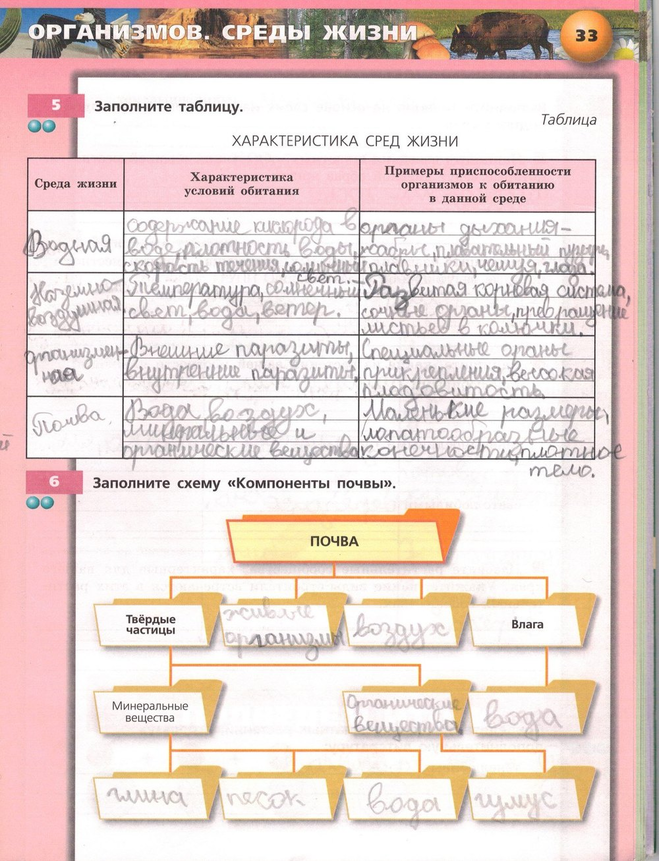 ОРГАНИЗМОВ. СРЕДЫ ЖИЗНИ
33
5
Заполните таблицу.
Таблица
ХАРАКТЕРИСТИКА СРЕД ЖИЗНИ
Среда жизни
Характеристика
условий обитания
Примеры приспособленности
организмов к обитанию
в данной среде
Водная
содержание кислорода в
воде, плотность воды,
скорость течения, солнечный
свет.
органы дыхания–
жабры, плавательный пузырь,
плавники, чешуя, глаза.
Наземно-
воздушная
Температура, солнечный
свет, вода, ветер.
Развитая корневая система,
сочные органы, превращение
листьев в колючки.
организмен-
ная
Внешние паразиты,
внутренние паразиты.
Специальные органы
прикрепления, высокая
плодовитость
Почва
Вода, воздух,
минеральные и
органические вещества
Маленькие размеры,
лопатообразные
конечности, плотное
тело.
6
Заполните схему «Компоненты почвы».
ПОЧВА
Твёрдые
частицы
живые
организмы
воздух
Влага
Минеральные
вещества
Органические
вещества
вода
глина
песок
вода
гумус